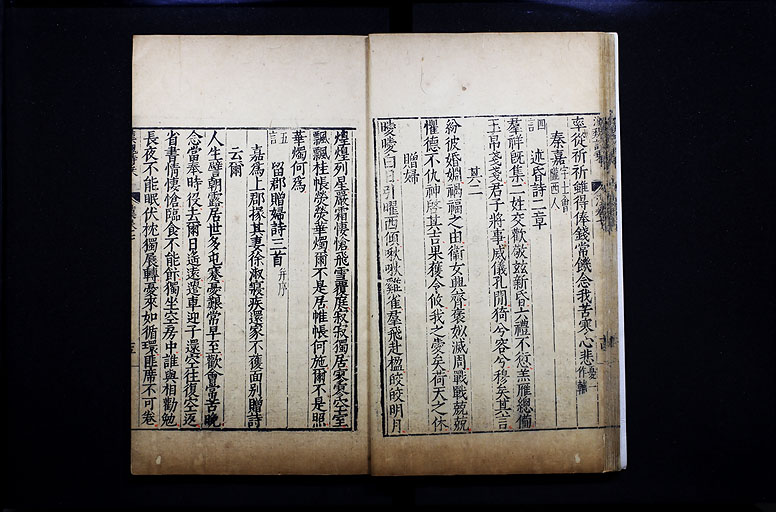 率從祈祈雖得俸錢常饑念我苦寒心悲憂一作
秦嘉字士會隴西人
四言 述昏詩二章
羣祥既集二姓交歡敬茲新昏六禮不愆羔雁總備
玉帛戔戔君子將事威儀孔閑猗兮容兮穆矣其言
其二
紛彼婚姻禍福之由衛女興齊褒姒滅周戰戰兢兢
懼德不仇神啓其吉果獲令攸我之愛矣荷天之休
贈婦
曖曖白日引曜西傾啾啾雞雀羣飛赴楹皎皎明月
煌煌列星嚴霜悽愴飛雪覆庭寂寂獨居寥寥空室
飄飄桂帳熒熒華燭爾不是居帷帳何施爾不是照
華燭何爲
五言 留郡贈婦詩三首 并序
嘉爲上郡掾其妻徐淑寢疾還家不獲面别贈詩
云爾
人生譬朝露居世多屯蹇憂艱常早至歡會常苦晚
念當奉時役去爾日遙遠遣車迎子還空往復空返
省書情悽愴臨食不能飯獨坐空房中誰與相勸勉
長夜不能眠伏枕獨展轉憂來如循環匪席不可卷